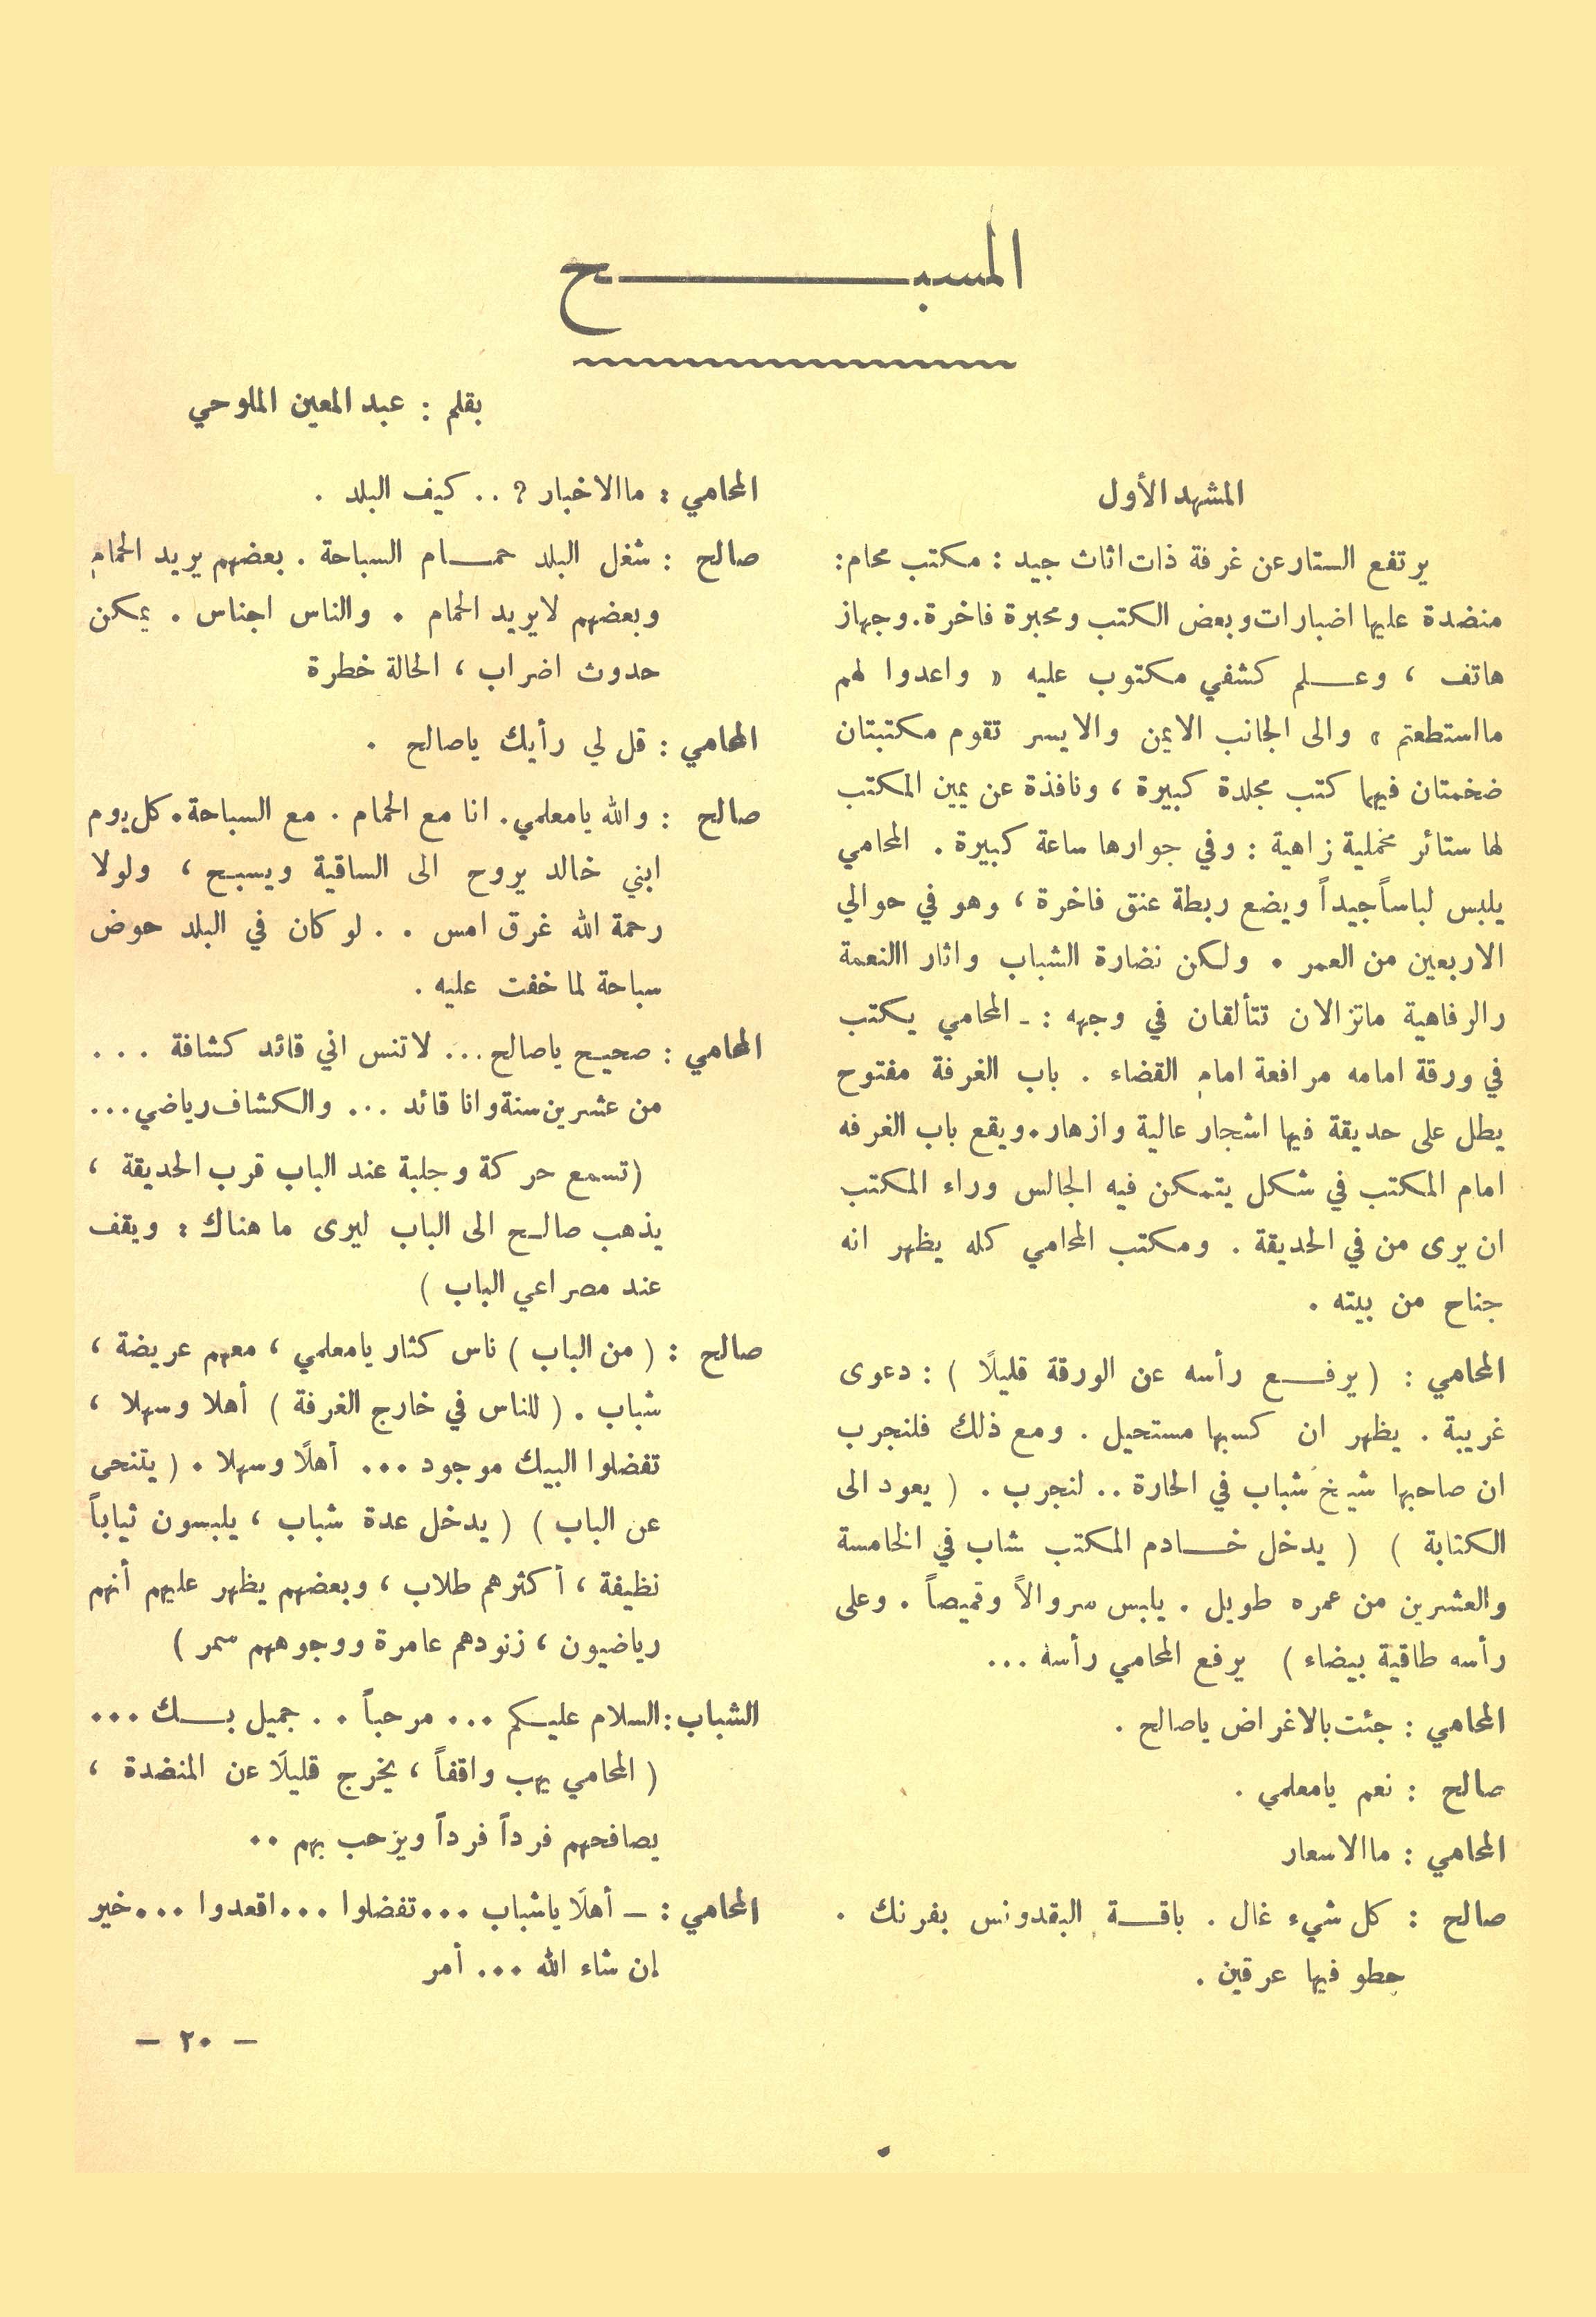 المسبـــــــــح
بقلم : عبد المعين الملوحي
المشهد الأول
يرتفع الستار عن غرفة ذات اثاث جيد : مكتب محام :
منضدة عليها اضبارات وبعض الكتب ومحبرة فاخرة. وجهاز
هاتف ، وعـــلم كشفي مكتوب عليه « واعدوا لهم
مااستطعتم » والى الجانب الايمن والايسر تقوم مكتبتان
ضخمتان فيهما كتب مجلدة كبيرة ، ونافذة عن يمين المكتب
لها ستائر مخملية زاهية : وفي جوارها ساعة كبيرة . المحامي
يلبس لباساً جيداً ويضع ربطة عنق فاخرة ، وهو في حوالي
الاربعين من العمر . ولكن نضارة الشباب واثار االنعمة
رالرفاهية ماتزالان تتألقان في وجهه : ـ المحامي يكتب
في ورقة امامه مرافعة امام القضاء . باب الغرفة مفتوح
يطل على حديقة فيها اشجار عالية وازهار. ويقع باب الغرفه
امام المكتب في شكل يتمكن فيه الجالس وراء المكتب
ان يرى من في الحديقة . ومكتب المحامي كله يظهر انه
جناح من بيته .
المحامي : ( يرفـــع رأسه عن الورقة قليلًا ) : دعوى
غريبة . يظهر ان كسبها مستحيل . ومع ذلك فلنجرب
ان صاحبها شيخ شباب في الحارة .. لنجرب . ( يعود الى
الكتابة ) ( يدخل خـــادم المكتب شاب في الخامسة
والعشرين من عمره طويل . يلبس سروالاً وقميصاً . وعلى
رأسه طاقية بيضاء ) يرفع المحامي رأسه ...
المحامي : جئت بالاغراض ياصالح .
صالح : نعم يامعلمي .
المحامي : ماالاسعار
صالح : كل شيء غال . باقـــة البقدونس بفرنك .
حطو فيها عرقين .
المحامي : ماالاخبار ؟ .. كيف البلد .
صالح : شغل البلد حمـــام السباحة . بعضهم يريد الحمام
وبعضهم لايريد الحمام . والناس اجناس . يمكن
حدوث اضراب ، الحالة خطرة
المحامي : قل لي رأيك ياصالح .
صالح : والله يامعلمي. انا مع الحمام . مع السباحة. كل يوم
ابني خالد يروح الى الساقية ويسبح ، ولولا
رحمة الله غرق امس . . لو كان في البلد حوض
سباحة لما خفت عليه .
المحامي : صحيح ياصالح ... لاتنس اني قائد كشافة ...
من عشرين سنة وانا قائد ... والكشاف رياضي ...
(تسمع حركة وجلبة عند الباب قرب الحديقة ،
يذهب صالـح الى الباب ليرى ما هناك : ويقف
عند مصراعي الباب )
صالح : ( من الباب ) ناس كثار يامعلمي ، معهم عريضة ،
شباب . ( للناس في خارج الغرفة ) أهلا وسهلا ،
تفضلوا البيك موجود ... أهلًا وسهلا . ( يتنحى
عن الباب ) ( يدخل عدة شباب ، يلبسون ثياباً
نظيفة ، أكثرهم طلاب ، وبعضهم يظهر عليهم أنهم
رياضيون ، زنودهم عامرة ووجوههم سمر )
الشباب : السلام عليـكم ... مرحباً . . جميل بـــك ...
( المحامي يهب واقفاً ، يخرج قليلًا عن المنضدة ،
يصافحهم فرداً فرداً ويزحب بهم ..
المحامي : ـ أهلًا ياشباب ... تفضلوا ... اقعدوا ... خير
إن شاء الله ... أمر
ـ ٢٠ ـ